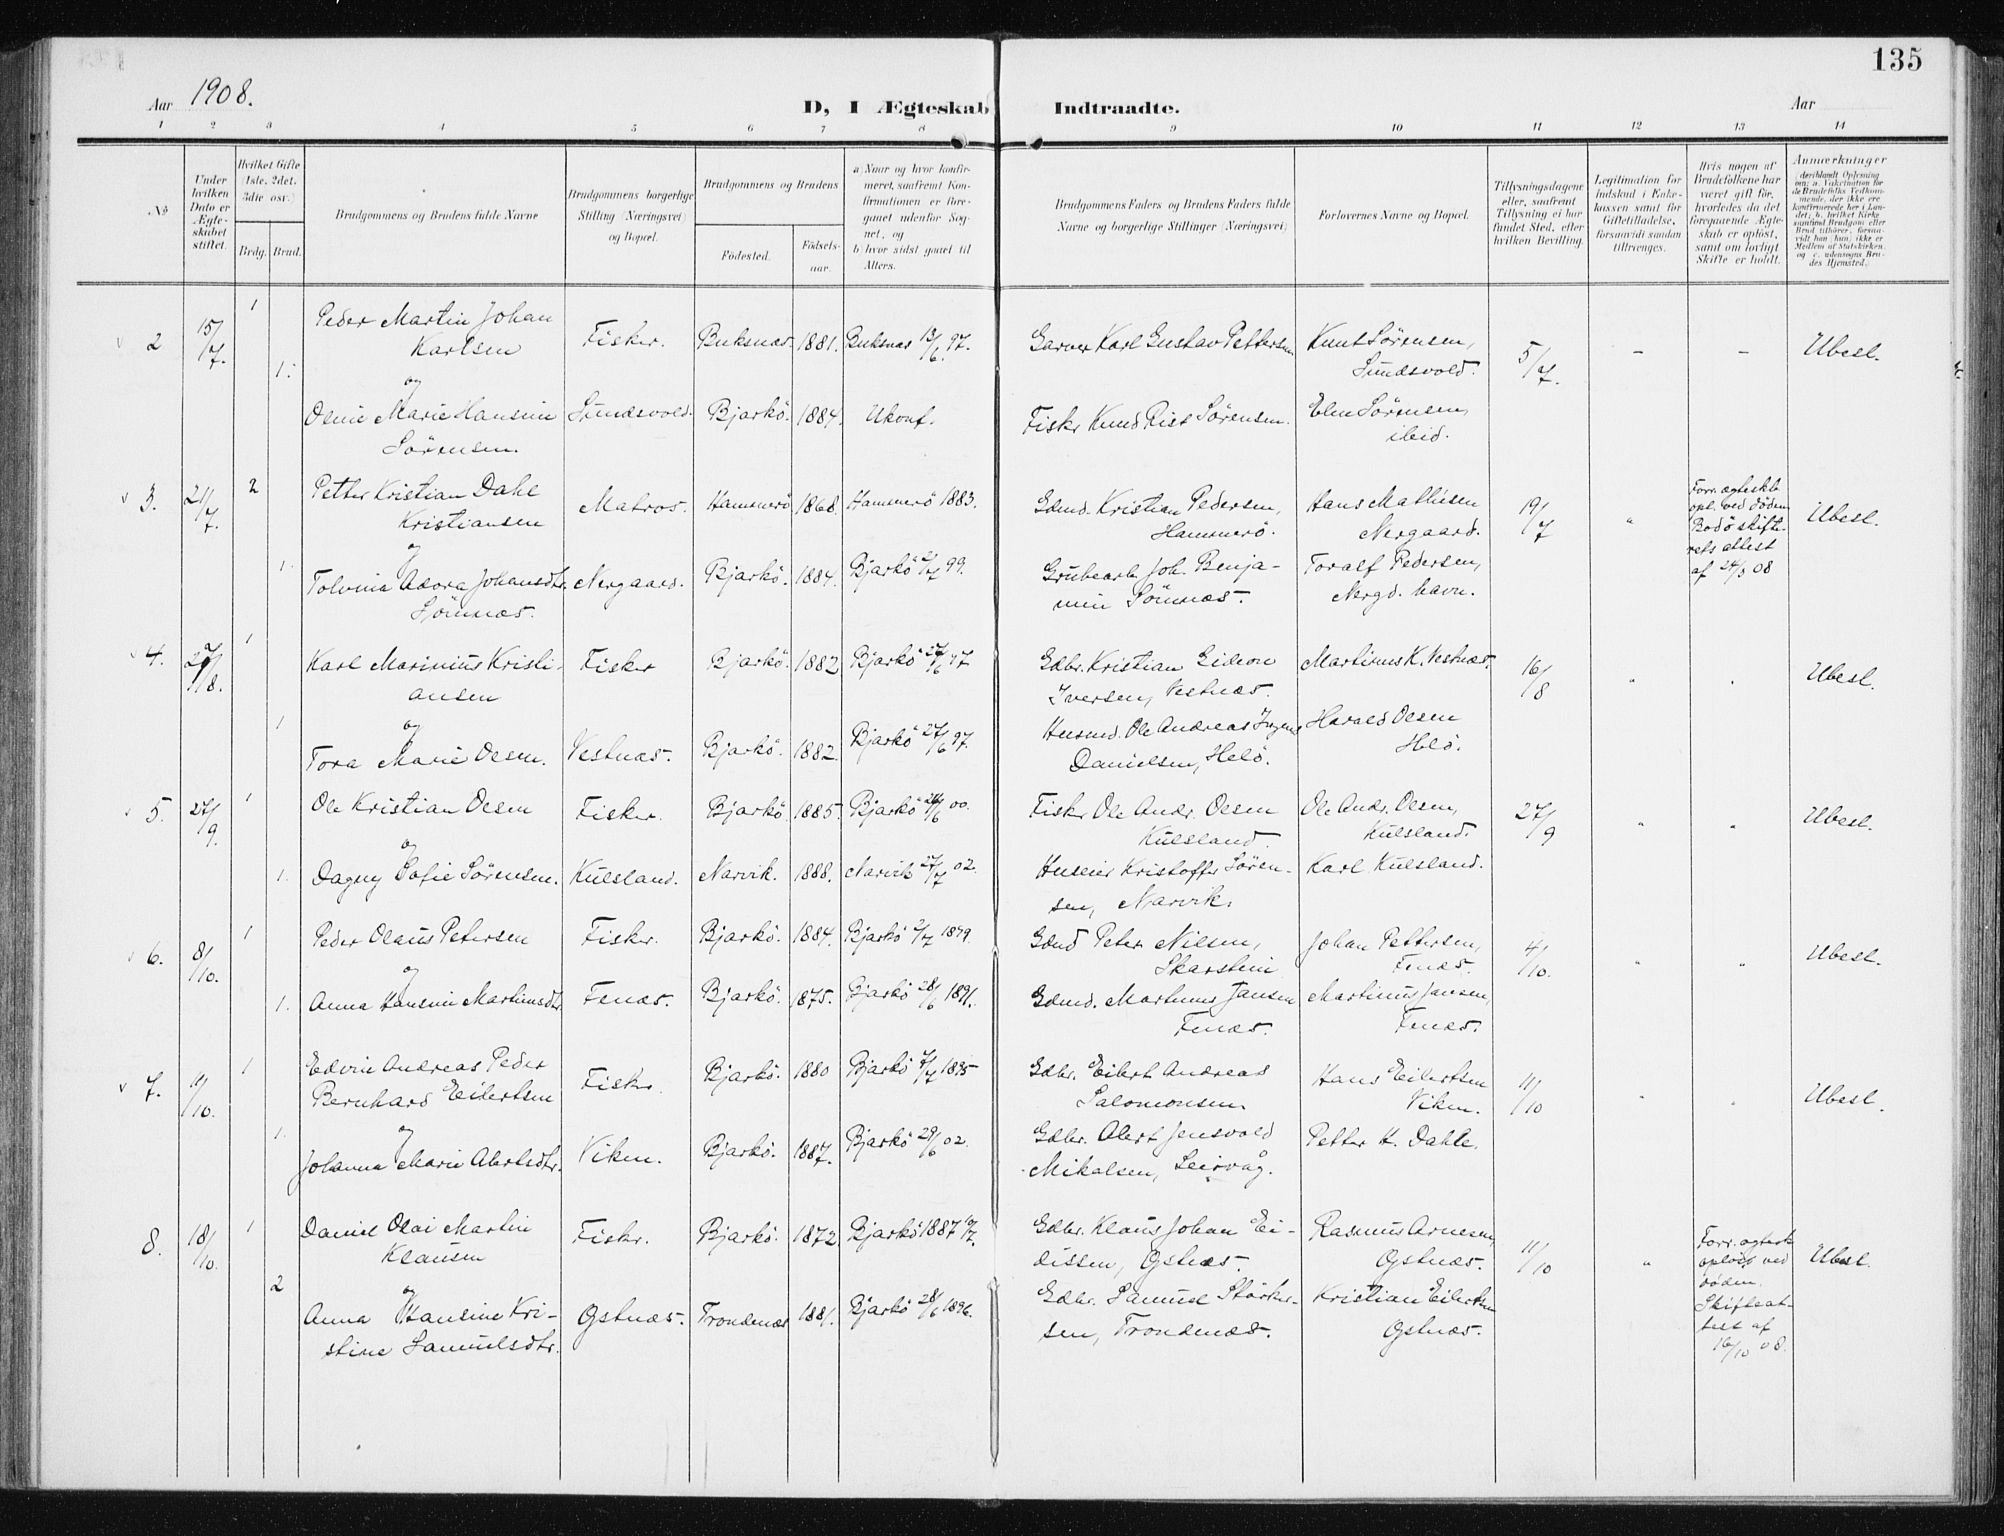 135
Aar 1908.
D, I Ægteskab Indtraadte.
Aar
1 2 3 4 5 6 7 8 9 10 11 12 13 14
No
Under hvilken Dato er Ægteskabet stiftet.
Hvilket Gifte (1ste, 2det, 3die osv.)
Brdg. Brud.
Brudgommens og Brudens fulde Navne
Brudgommens borgerlige Stilling (Næringsvei) og Bopæl.
Brudgommens og Brudens
Fødested.
Fødsels-aar.
a) Naar og hvor konfirmeret, saafremt Konfirmationen er foregaaet udenfor Sognet, og
b) hvor sidst gaaet til Alters.
Brudgommens Faders og Brudens Faders fulde Navne og borgerlige Stillinger (Næringsvei)
Forlovernes Navne og Bopæl.
Tillysningsdagene eller, saafremt Tillysning ei har fundet Sted, efter hvilken Bevilling.
Legitimation for Indskud i Enkekassen samt for Giftetilladelse, forsaavidt saadan tiltrænges.
Hvis nogen af Brudefolkene har været gift før, hvorledes da det foregaaende Ægteskab er opløst, samt om lovligt Skifte er holdt.
Anmærkninger
2 15/7. 1 Peder Martin Johan Fisker. Buksnæs. 1881. Buksnæs 13/6 97. Garver Karl Gustav Pettersen Knut Sørensen, 5/7. - - Ubesl.
Karlsen Sundsvold.
1. og
Marie Hansine Sundsvold. Bjarkö. 1884. Ukonf. Fisker Knud Rist Sørensen. Sørensen,
Sørensen. ibid.
3. 21/7. 2 Petter Kristian Dahl Matros. Hammerö 1868. Hammerö 1883. Gdmd. Kristian Pedersen, Hans Mathisen 19/7 " Forr. ægtesk. Ubesl.
Kristiansen Hammerö. Nergaard. opl. ved döden
og Bodö skifterets attest
1. Tolvina Adora Johansdtr. Nergaard. Bjarkö. 1884. Bjarkö 2/7 99. Grubearb. Joh. Benja- Toralf Pedersen, af 24/3 08
Sömnæs. min Sömnæs. Nergd. havn.
4. 1 Karl Marinius Kristi- Fisker Bjarkö. 1882 Bjarkö 27/6 97 Gdbr. Kristian Gideon Martinus K. Vestnæs. 16/8 " . Ubesl.
ansen Iversen, Vestnæs.
1 og Husmd. Ole Andreas Harald Olsen
Tora Marie Olsen. Vestnæs. Bjarkö. 1882. Bjarkö 27/6 97. Danielsen, Helö. Helö.
5. 27/9. 1 Ole Kristian Olsen Fisker. Bjarkö. 1885. Bjarkö 00. Fisker Ole Andr. Olsen Ole Andr. Olsen, 27/9 " " Ubesl.
og Kulsland. Kulsland.
1. Dagny Sofie Sørensen. Kulsland. Narvik. 1888. Narvik 27/7 02. Huseier Kristoffer Søren- Karl Kulsland.
sen, Narvik.
6. 8/10. 1 Peder Olaus Petersen Fisker. Bjarkö. 1884. Bjarkö 2/7 1899. Gdmd Peter Nilsen, Johan Pettersen, 4/10. " " Ubesl.
og Skarstein Fenæs.
1. Anna Hansine Martinusdtr. Fenæs. Bjarkö. 1875. Bjarkö 28/6 1891. Gdmd. Martinus Jansen Martinus Jansen,
Fenæs. Fenæs.
7. 11/10. 1 Edvin Andreas Peder Fisker. Bjarkö. 1880 Bjarkö 7/7 1895 Gdbr. Eilert Andreas Hans Eilertsen 11/10 " . Ubesl.
Bernhard Eilertsen Salomonsen. Viken.
1. og
Johanna Marie Alertsdtr. Viken. Bjarkö. 1887. Bjarkö 29/6 02. Gdbr. Alert Jensvold Petter H. Dahle.
Mikalsen, Leirvåg.
8. 18/10. 1 Daniel Olai Martin Fisker. Bjarkö. 1872 Bjarkö 1887 Gdbr. Klaus Johan Ei- Rasmus Arnesen, 11/10 " Forr. ægtesk. Ubesl.
Klausen dissen, Gstnæs. Gstnæs. oplöst ved
2 og döden.
Anna Hansine Kri- Gstnæs. Trondenæs 1881. Bjarkö 28/6 1896. Gdbr. Samuel Störker- Kristian Eilertsen Skifteat-
stine Samuelsdtr. sen, Trondenæs. Gstnæs. test af
16/10 08.